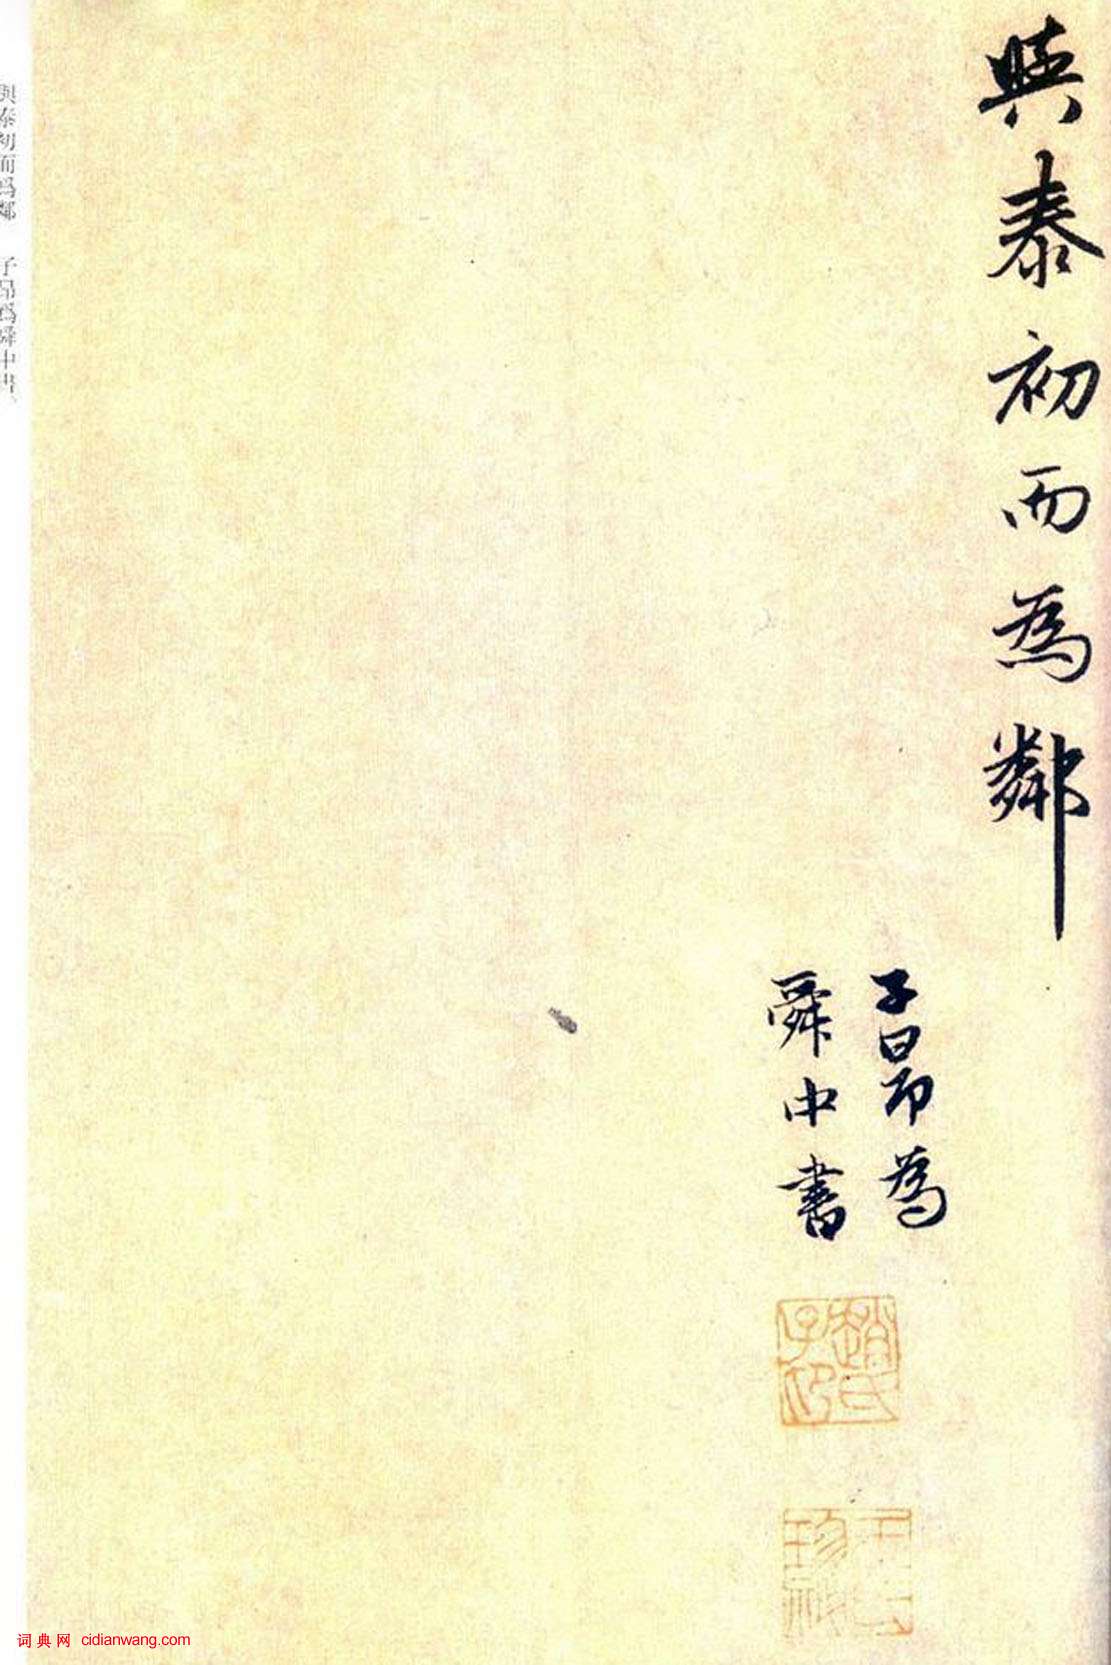 與泰初而為鄰
子昂為
舜中書
趙氏
子昂
與泰初而爲鄰 子昂爲舜中書。
词典网 cidianwang.com